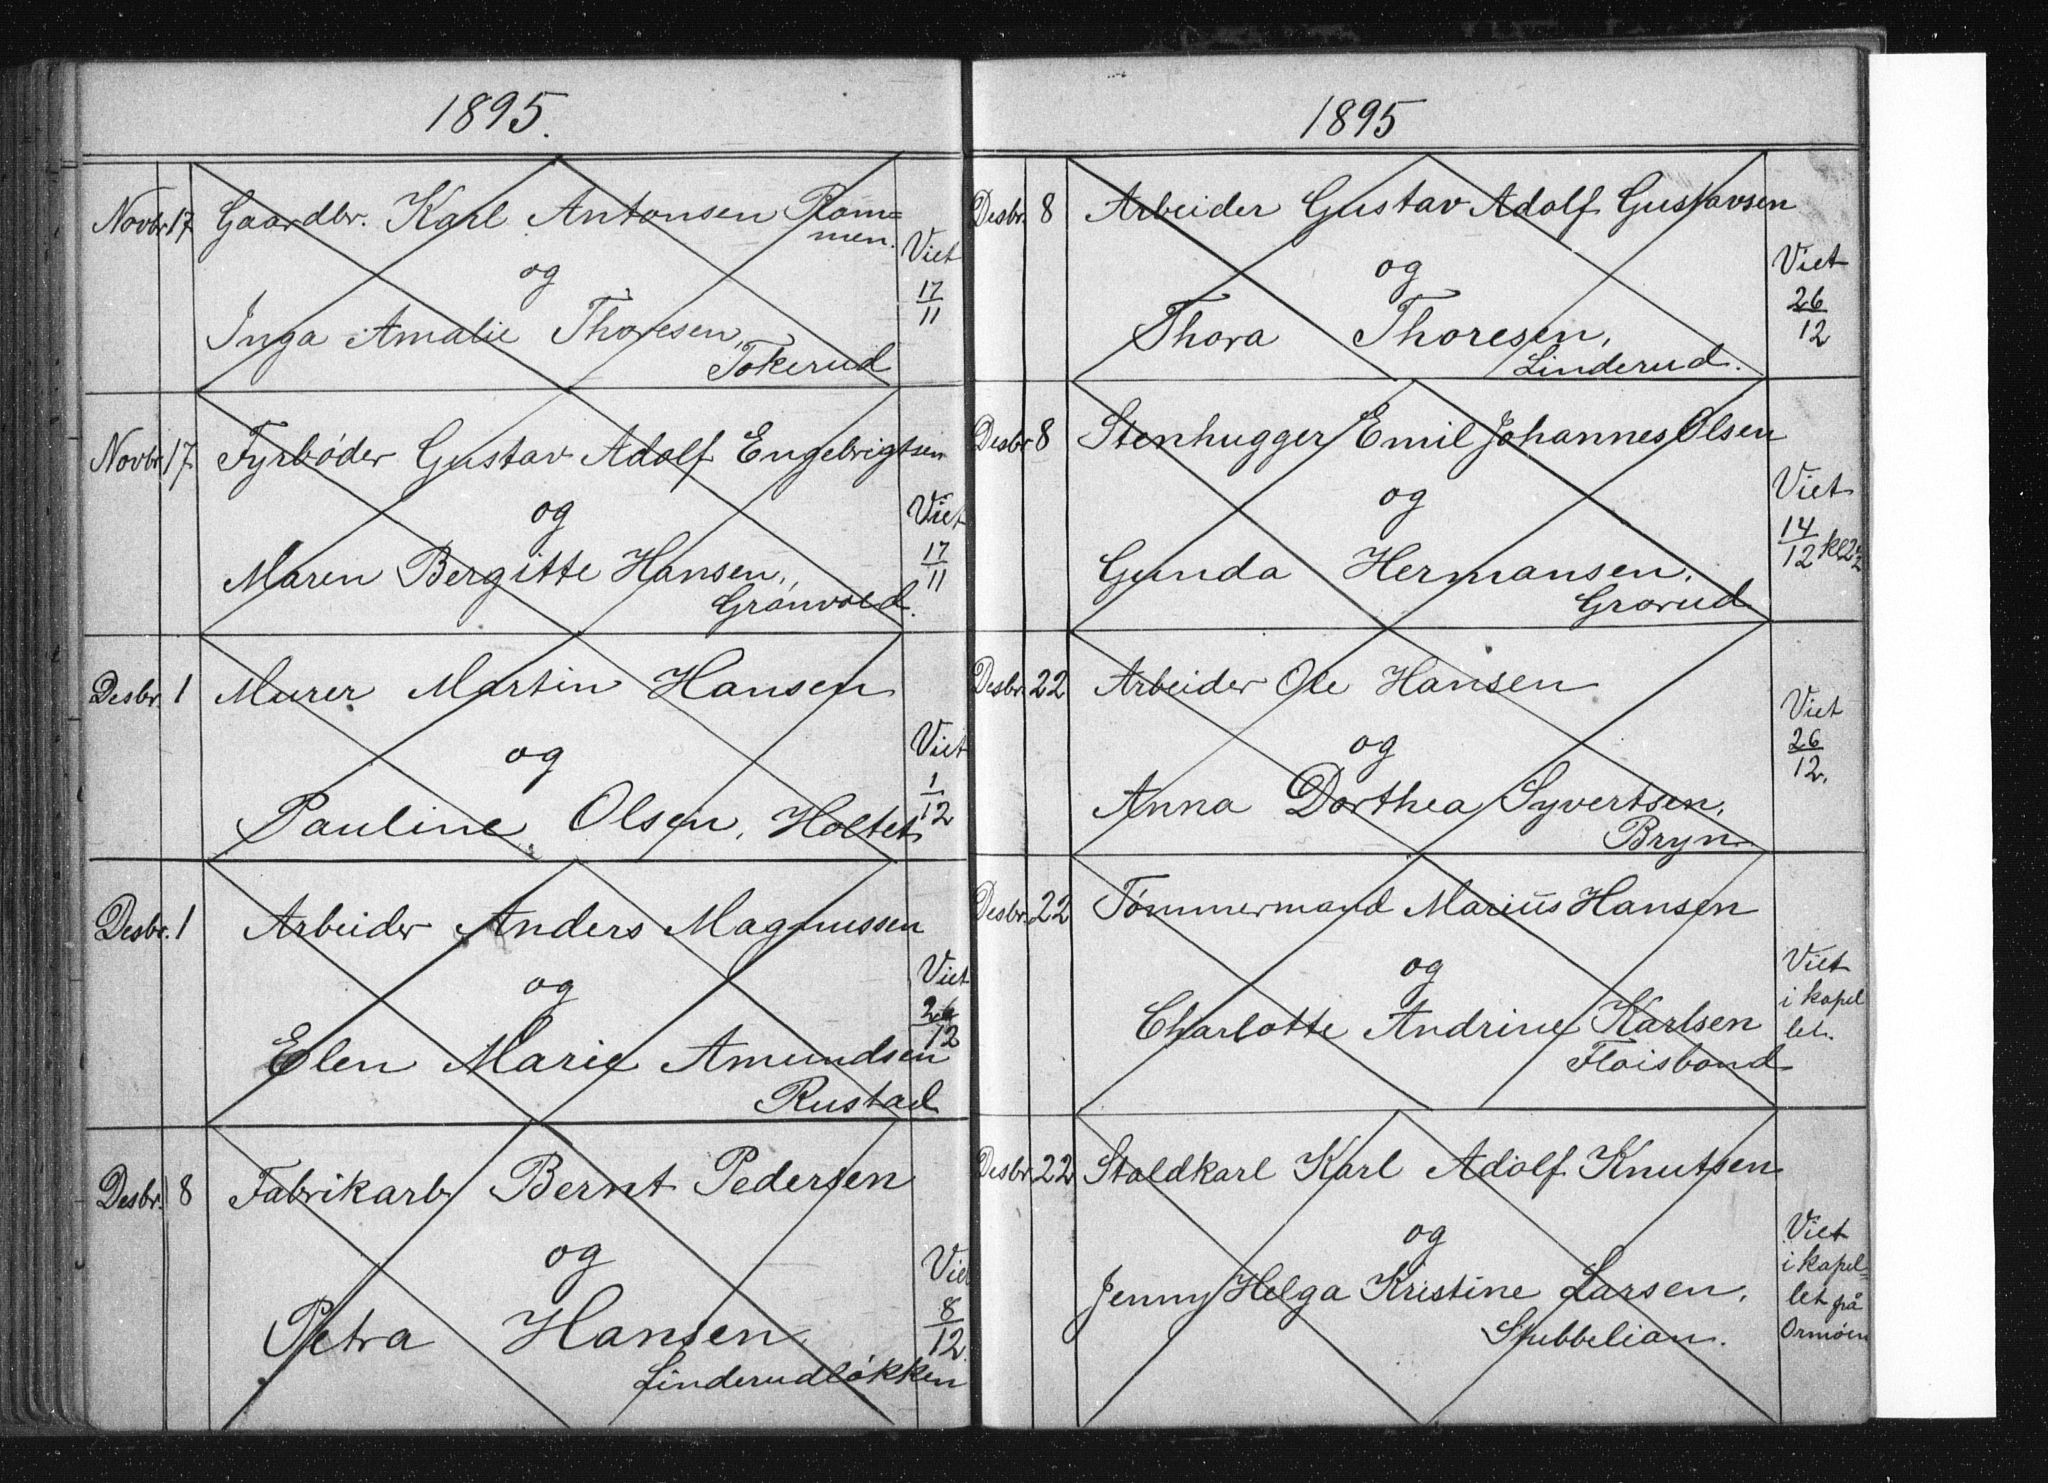 1895.
Novbr. 17 Gaardbr. Karl Antonsen Rom=
men.
og
Viet 17/11
Inga Amalie Thoresen,
Tokerud
Novbr. 17 Fyrbøder Gustav Adolf Engebrigtsen
og
Viet 17/11
Maren Bergitte Hansen,
Grønvold.
Desbr. 1 Murer Martin Hansen
og
Viet 1/12
Pauline Olsen, Holtet
Desbr. 1 Arbeider Anders Magnussen
og
Viet 26/12
Elen Marie Amundsen
Rustad
Desbr. 8 Fabrikarb. Bernt Pedersen
og
Viet 8/12.
Petra Hansen
Linderudløkken
1895
Desbr. 8 Arbeider Gustav Adolf Gustavsen
og
Viet 26/12
Thora Thoresen,
Linderud.
Desbr. 8 Stenhugger Emil Johannes Olsen
og
Viet 14/12 kl 2½
Gunda Hermansen,
Grorud
Desbr. 22 Arbeider Ole Hansen
og
Viet 26/12.
Anna Dorthea Syvertsen,
Bryn
Desbr. 22 Tømmermand Marius Hansen
og
Viet
i kapel
let.
Charlotte Andrine Karlsen
Fløisbond
Desbr. 22 Staldkarl Karl Adolf Knutsen
og
Viet
i kapel=
let på
Ormøen
Jenny Helga Kristine Larsen,
Stubbelian.